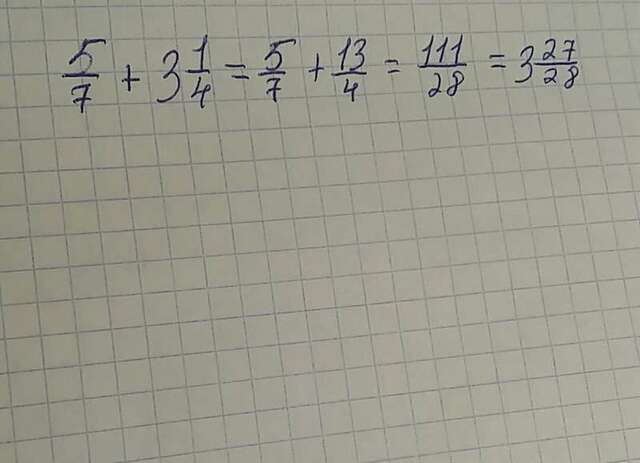 5/7 + 3 1/4 = 5/7 + 13/4 = 111/28 = 3 27/28